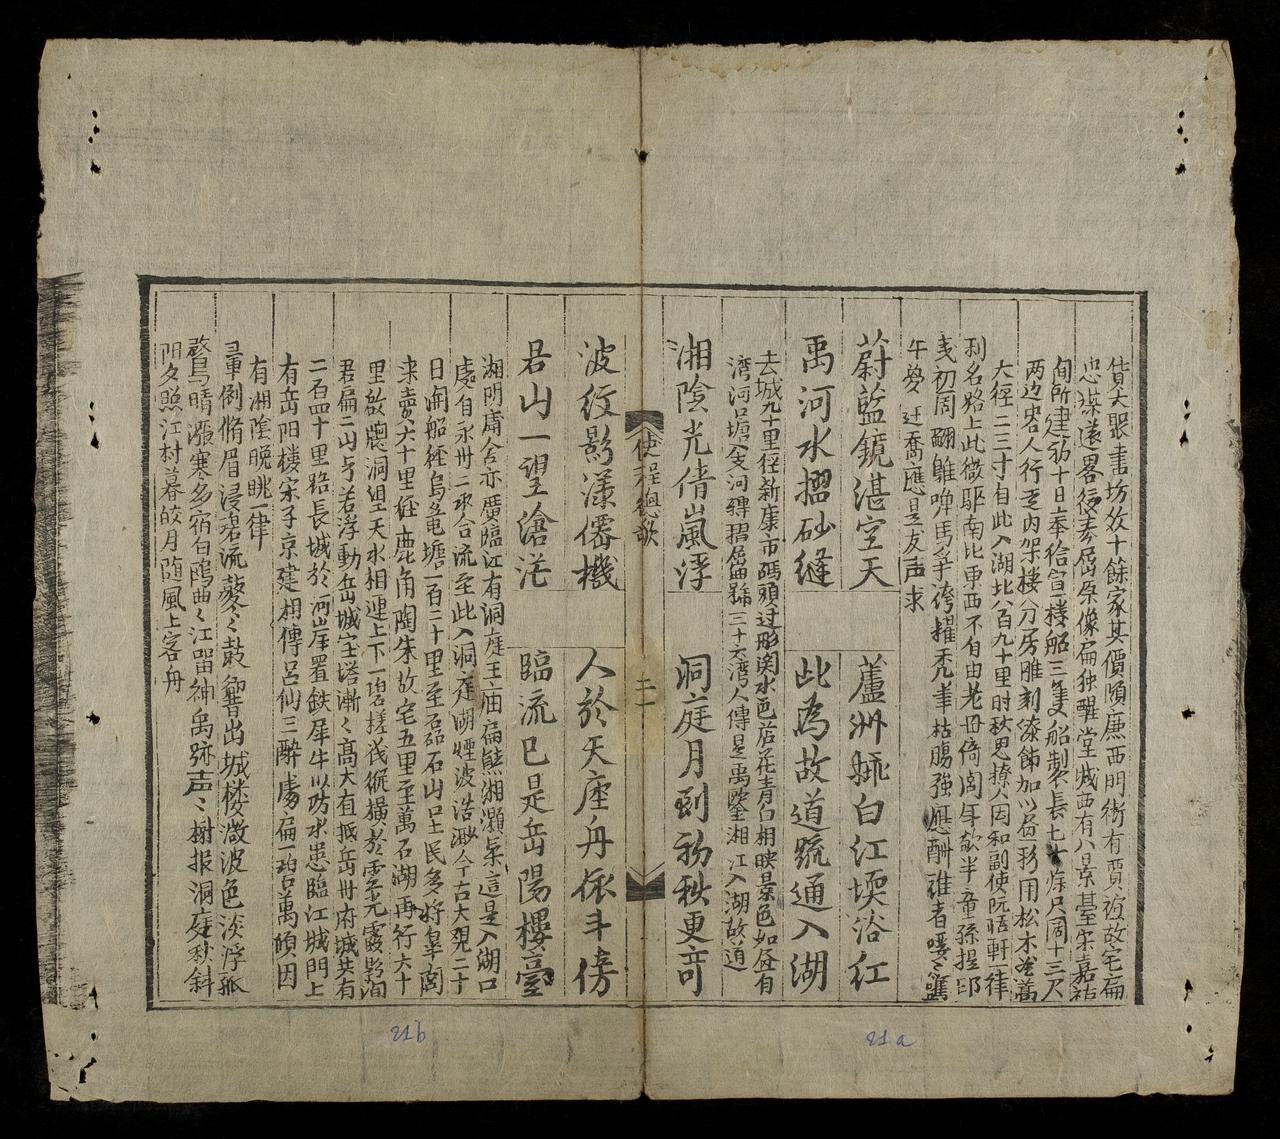 貨大聚書坊放十餘家其價頗廉西門街有賈誼故宅扁
忠謀遠畧後奏屈原像扁独醒堂城西有八景基宋嘉祐
間所建初十日奉拾宣樓船三隻船製長七十餘尺濶十三尺
两边客人行走内架樓分房雕刻漆飾加以船務用松木
大徑二三寸自此入湖北八百九十里时秋思撩人因和副使阮恬軒一律
利名路上此微驅南北東西不自由老母倚閭年欲半童孫提印
初周翩雛啅馬爭誇擢禿筆枯腸強應酬誰者嚶嚶舊
午夢迁喬應是友声求
蔚藍鏡湛空天
蘆洲𦕈白江堧浴红
禹河水摺砂縫
此為故道䟽通入湖
去城九十里径新康市碼頭过形関水邑蓎花青白相映景色如昼有
湾河㙮入支河縛摺屈曲號三十六湾人傳是禹鑿湘江入湖故道
湘陰光倩嵐浮
洞庭月到初秋更奇
使程總歌
二一
波紋影漾僊機
人於天座舟依斗傍
君山一望滄茫
臨流已是岳陽樓臺
湘阴庸舍亦廣臨江有洞庭王庙扁熊湘灝氣這是入湖口
處自永州二水合流至此入洞庭湖煙波浩渺今古大观二十
日開船經烏龟塘一百二十里至磊石山口土民多好皐閣
来賣六十里徑鹿角陶朱故宅五里至萬石湖再行六十
里故牕洞廷天水相連上下一碧槎筏縱橫於雲光霞影间
君扁二山与若浮動岳城宝塔漸々高大直抵岳州府城共有
二石四十里臨長城於河岸置鉄犀牛以防水患臨江城門上
有岳阳樓宋子京建相傳吕仙三醉處扁一碧萬頃因
有湘陰晚眺一律
單倒脩眉浸碧流蔘々鼓響出城楼瀲波色淡浮孤
鶩鳥晴瀲寒多宿白鴎曲々江畄神禹跡声々榭报洞庭秋斜
阳夕照江村暮皎月随風上客舟
21b
21a